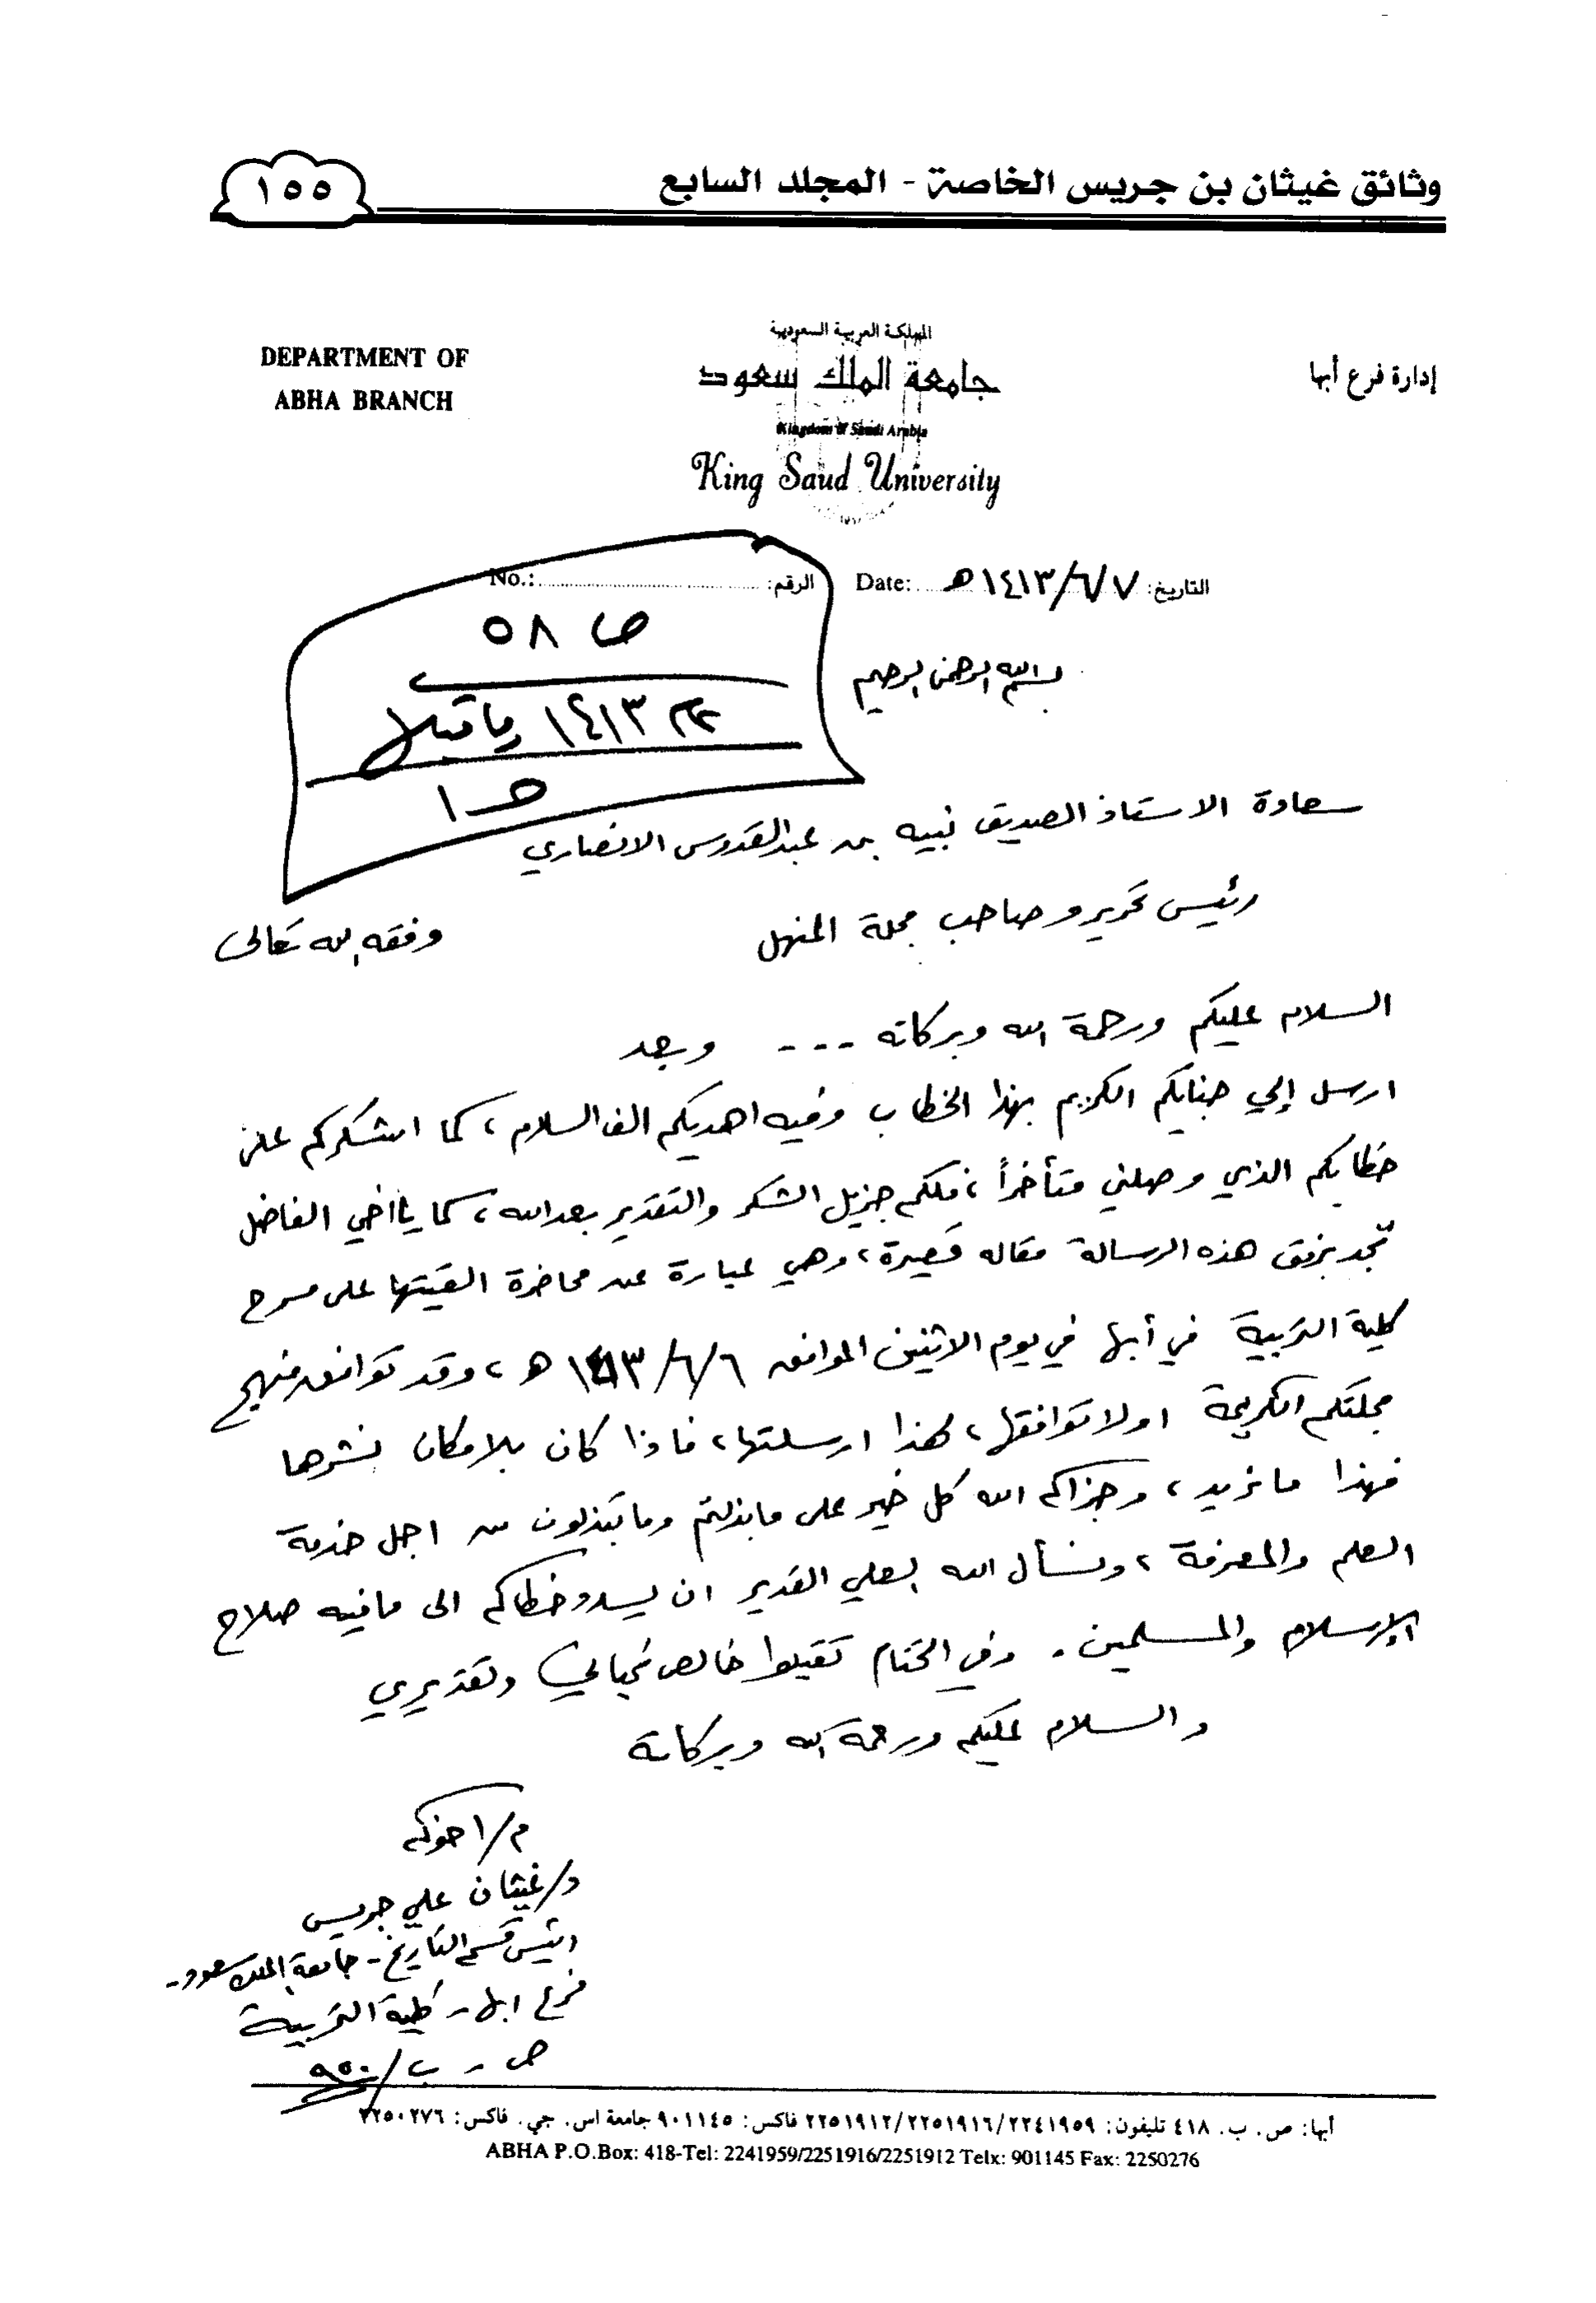 وثائق غيثان بن جريس الخاصة - المجلد السابع
١٥٥
المملكة العربية السعودية
إدارة فرع أبها
جامعة الملك سعود
DEPARTMENT OF
ABHA BRANCH
Kingdom of Saudi Arabia
King Saud University
التاريخ: ١٤١٣/٦/٧ هـ Date:
الرقم: No.:
ص ٥٨
١٤١٣ وما قبل
ص ١
بسم الله الرحمن الرحيم
سعادة الاستاذ الصديق نبيه بن عبدالقدوس الانصاري
رئيس تحرير وصاحب مجلة المنهل
وفقه الله تعالى
السلام عليكم ورحمة الله وبركاته --- وبعد
ارسل إلى جنابكم الكريم بهذا الخطاب وفيه اهديكم الف السلام، كما اشكركم على
خطابكم الذي وصلني متأخراً، فلكم جزيل الشكر والتقدير بعد الله، كما يا أخي الفاضل
تجد برفق هذه الرسالة مقاله قصيرة، وهي عبارة عن محاضرة القيتها على مسرح
كلية التربية في أبها في يوم الاثنين الموافق ١٤١٣/٦/٦ هـ، وقد توافق منهج
مجلتكم الكريمة او لا توافقها، لهذا ارسلتها، فاذا كان بلامكان نشرها
فهذا ما نريد، وجزاكم الله كل خير على ما بذلتم وما تبذلون من اجل خدمة
العلم والمعرفة، ونسأل الله العلي القدير ان يسدد خطاكم الى ما فيه صلاح
الإسلام والمسلمين. وفي الختام تقبلوا خالص تحياتي وتقديري
والسلام عليكم ورحمة الله وبركاته
م/اخوكم
د/غيثان علي جريس
رئيس قسم التاريخ - جامعة الملك سعود -
فرع ابها - كلية التربية
ص - ب/٩٥٠
أبها: ص. ب. ٤١٨ تليفون: ٢٢٤١٩٥٩/٢٢٥١٩١٦/٢٢٥١٩١٢ فاكس: ٩٠١١٤٥ جامعة اس. جي. فاكس: ٢٢٥٠٢٧٦
ABHA P.O.Box: 418-Tel: 2241959/2251916/2251912 Telx: 901145 Fax: 2250276